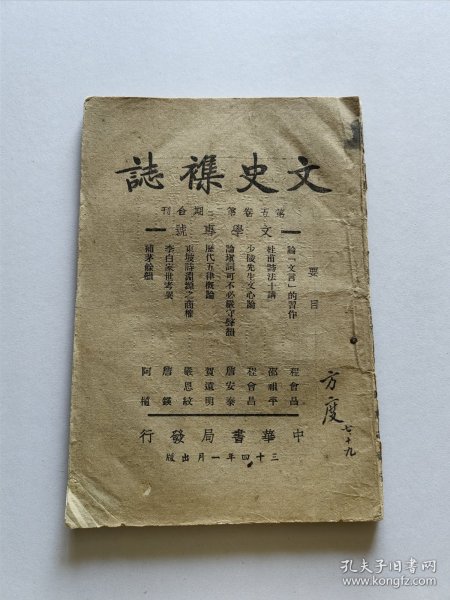 文史襍誌
第五卷第一二期合刊
文學專號
要目
論「文言」的習作 程會昌
杜甫詩法十講 邵祖平
少陵先生文心論 程會昌
論填詞可不必嚴守聲韻 詹安泰
歷代五律概論 賀遠明
東坡詩淵源之商榷 嚴恩紋
李白家世考異 詹鍈
補茅餘韻 阿
中華書局發行
三十四年一月出版
方度
七十九
孔夫子旧书网
www.kongfz.com